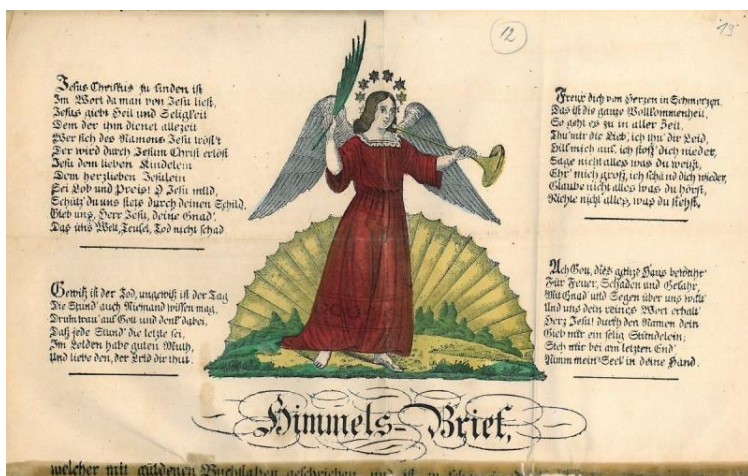 12
19
Jesus Christus zu finden ist
Im Wort da man von Jesu liest,
Jesus giebt Heil und Seligkeit
Dem der ihm dienet allezeit
Wer sich des Namens Jesu tröst't
Der wird durch Jesum Christ erlöst
Jesu dem lieben Kindelein
Dem herzlieben Jesulein
Sei Lob und Preis! O Jesu mild,
Schütz' du uns stets durch deinen Schild,
Gieb uns, Herr Jesu, deine Gnad'
Das uns Welt, Teufel, Tod nicht schad
Gewiß ist der Tod, ungewiß ist der Tag
Die Stund' auch Niemand wissen mag,
Drum trau' auf Gott und denk' dabei,
Daß jede Stund' die letzte sei,
Im Leiden habe guten Muth,
Und liebe den, der Leid dir thut.
Freu' dich von Herzen in Schmerzen
Das ist die ganze Vollkommenheit,
So geht es zu in aller Zeit,
Thu' mir die Lieb', ich thu' dir Leid,
Hilf mich auf, ich stoß' dich nieder,
Sage nicht alles was du weißt,
Ehr' mich groß, ich schänd dich wieder,
Glaube nicht alles was du hörst,
Richte nicht alles, was du siehst.
Ach Gott, dies ganze Haus bewahr'
Für Feuer, Schaden und Gefahr,
Mit Gnad' und Segen über uns walt'
Und uns dein reines Wort erhalt'
Herz Jesu! durch den Namen dein
Gieb mir ein selig Stündelein;
Steh mir bei am letzten End'
Nimm mein' Seel' in deine Hand.
Himmels-Brief,
welcher mit güldenen Buchstaben geschrieben und ist